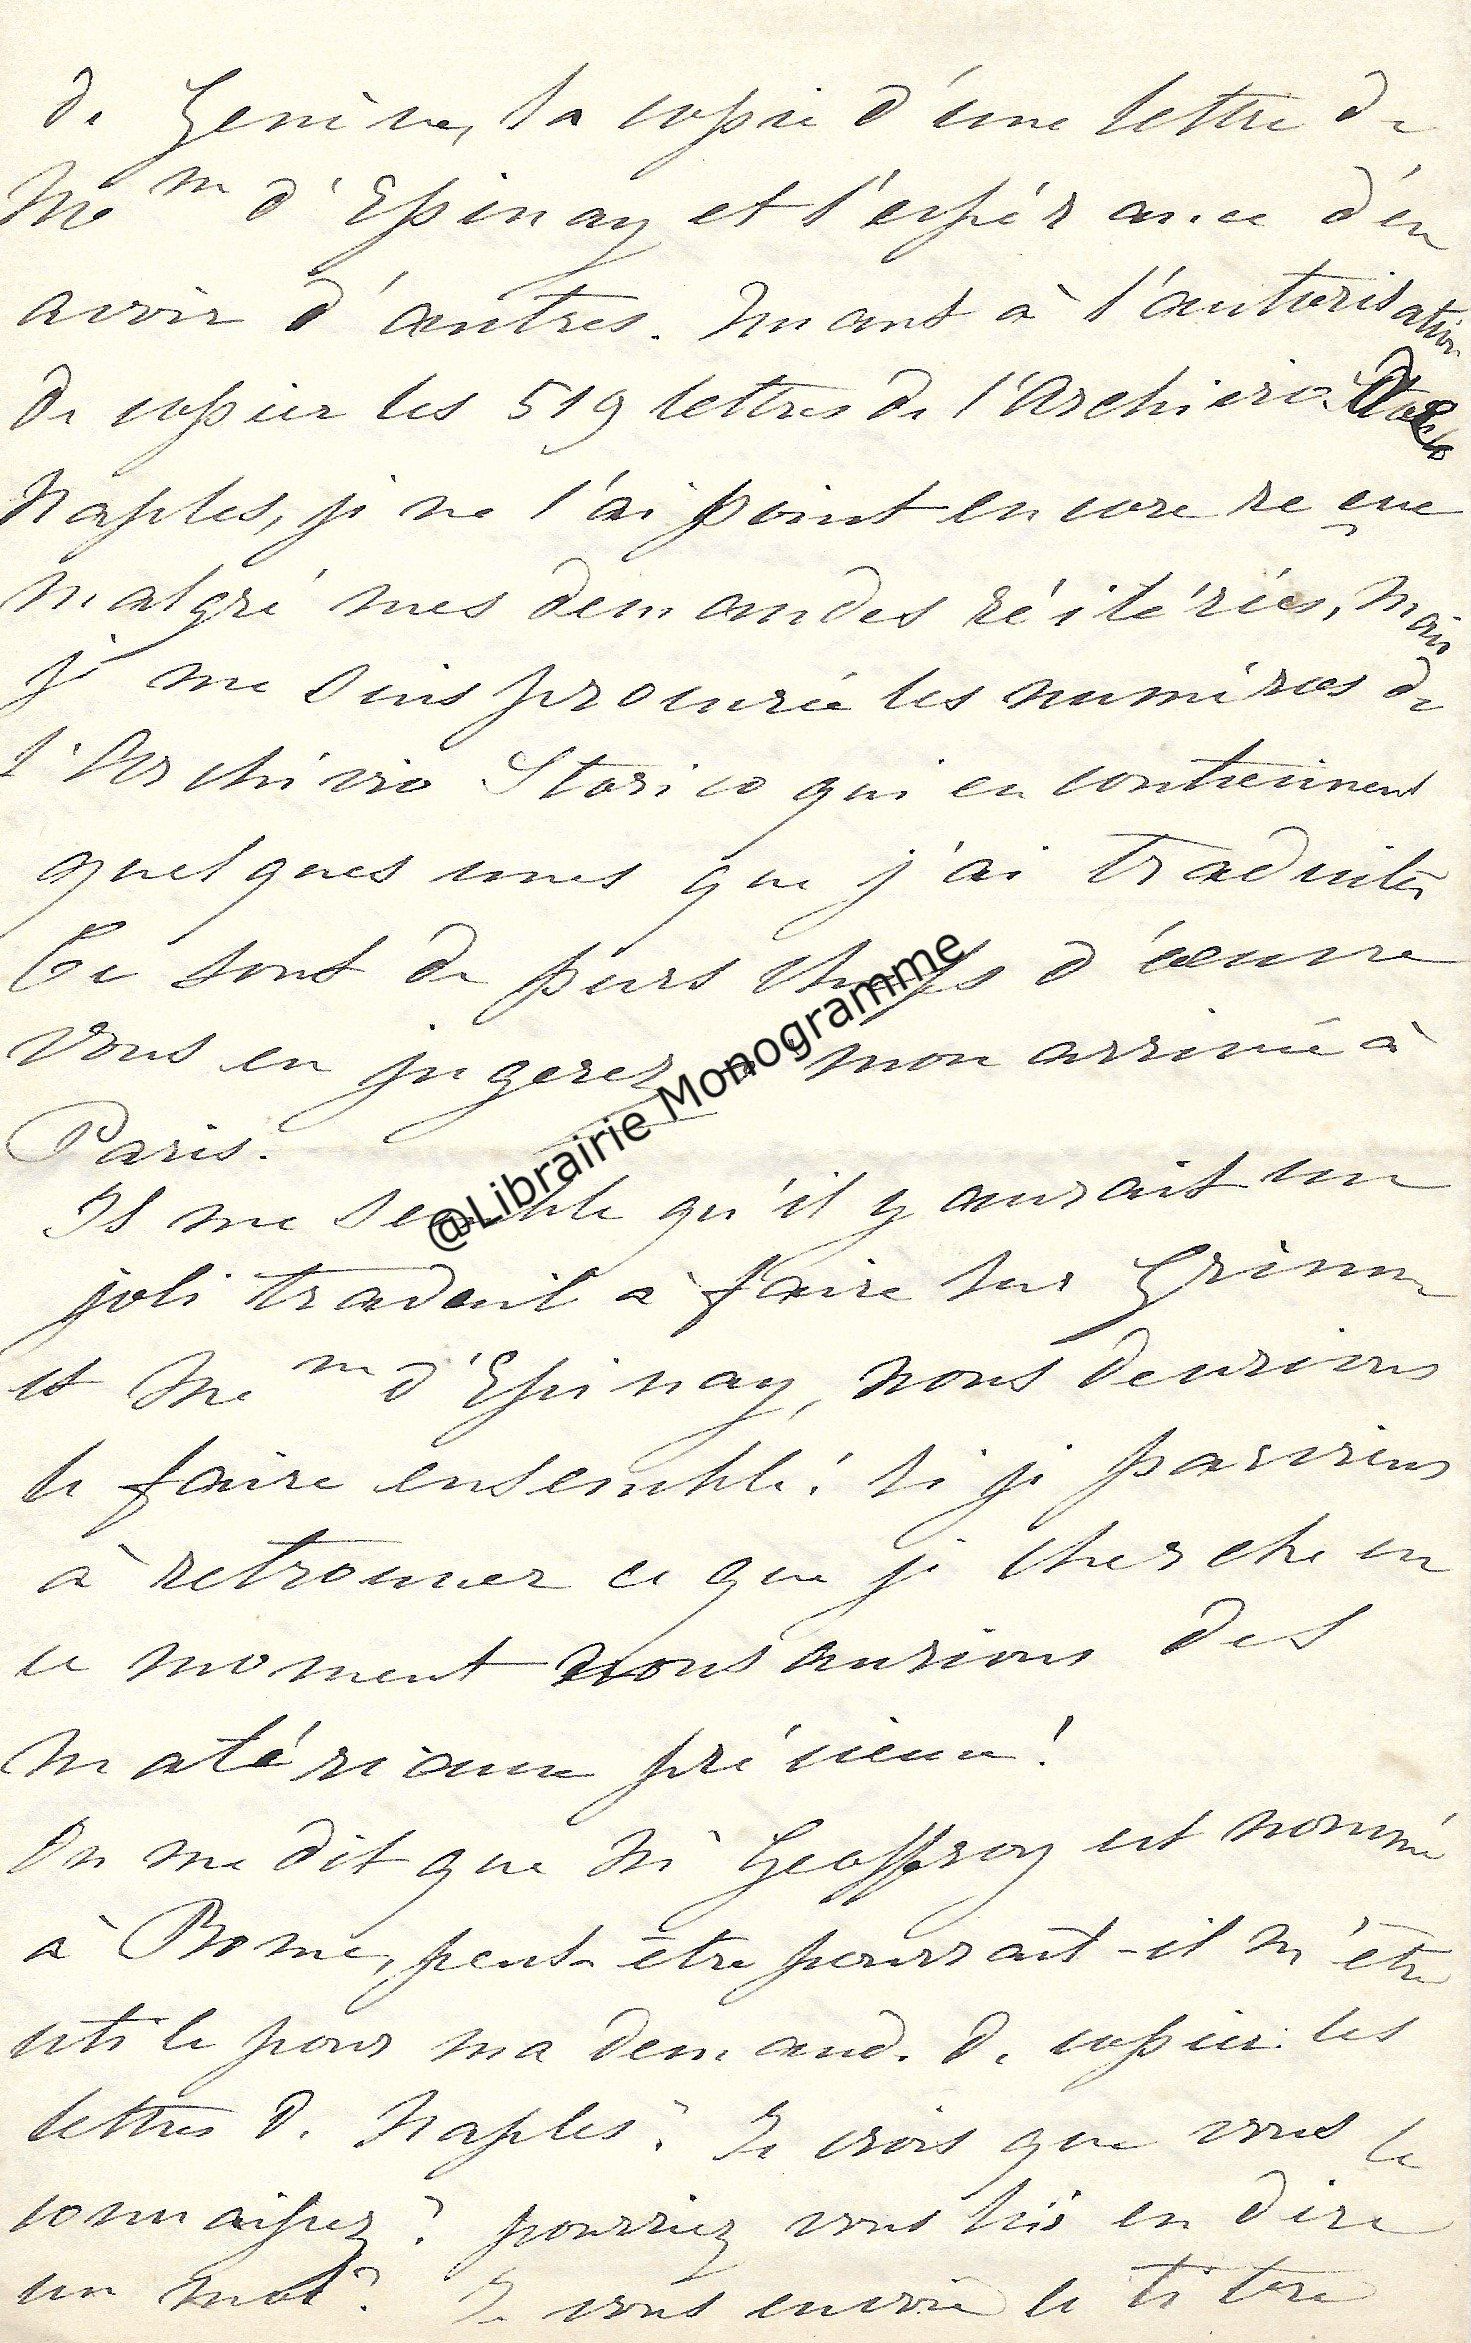 de Genève, la copie d'une lettre de
Me m d'Epinay et l'espérance d'en
avoir d'autres. Quant à l'autorisation
de copier les 519 lettres de l'Archivio
Naples, je ne l'ai point encore reçue
malgré mes demandes réitérées, mais
je me suis procurée les numéros de
l'Archivio Storico qui en contiennent
quelques unes que j'ai traduites
Ce sont de purs chefs d'œuvre
vous en jugerez à mon arrivée à
Paris.
Il me semble qu'il y aurait un
joli travail à faire sur Grimm
et Me m d'Epinay, nous devrions
le faire ensemble! si je parviens
à retrouver ce que je cherche en
ce moment nous aurions des
matériaux précieux!
On me dit que Mr Geoffroy est nommé
à Rome, peut-être pourrait-il m'être
utile pour ma demande de copier les
lettres de Naples? Je crois que vous le
connaissez? pourriez vous lui en dire
un mot? Je vous envoie le titre
@Librairie Monogramme